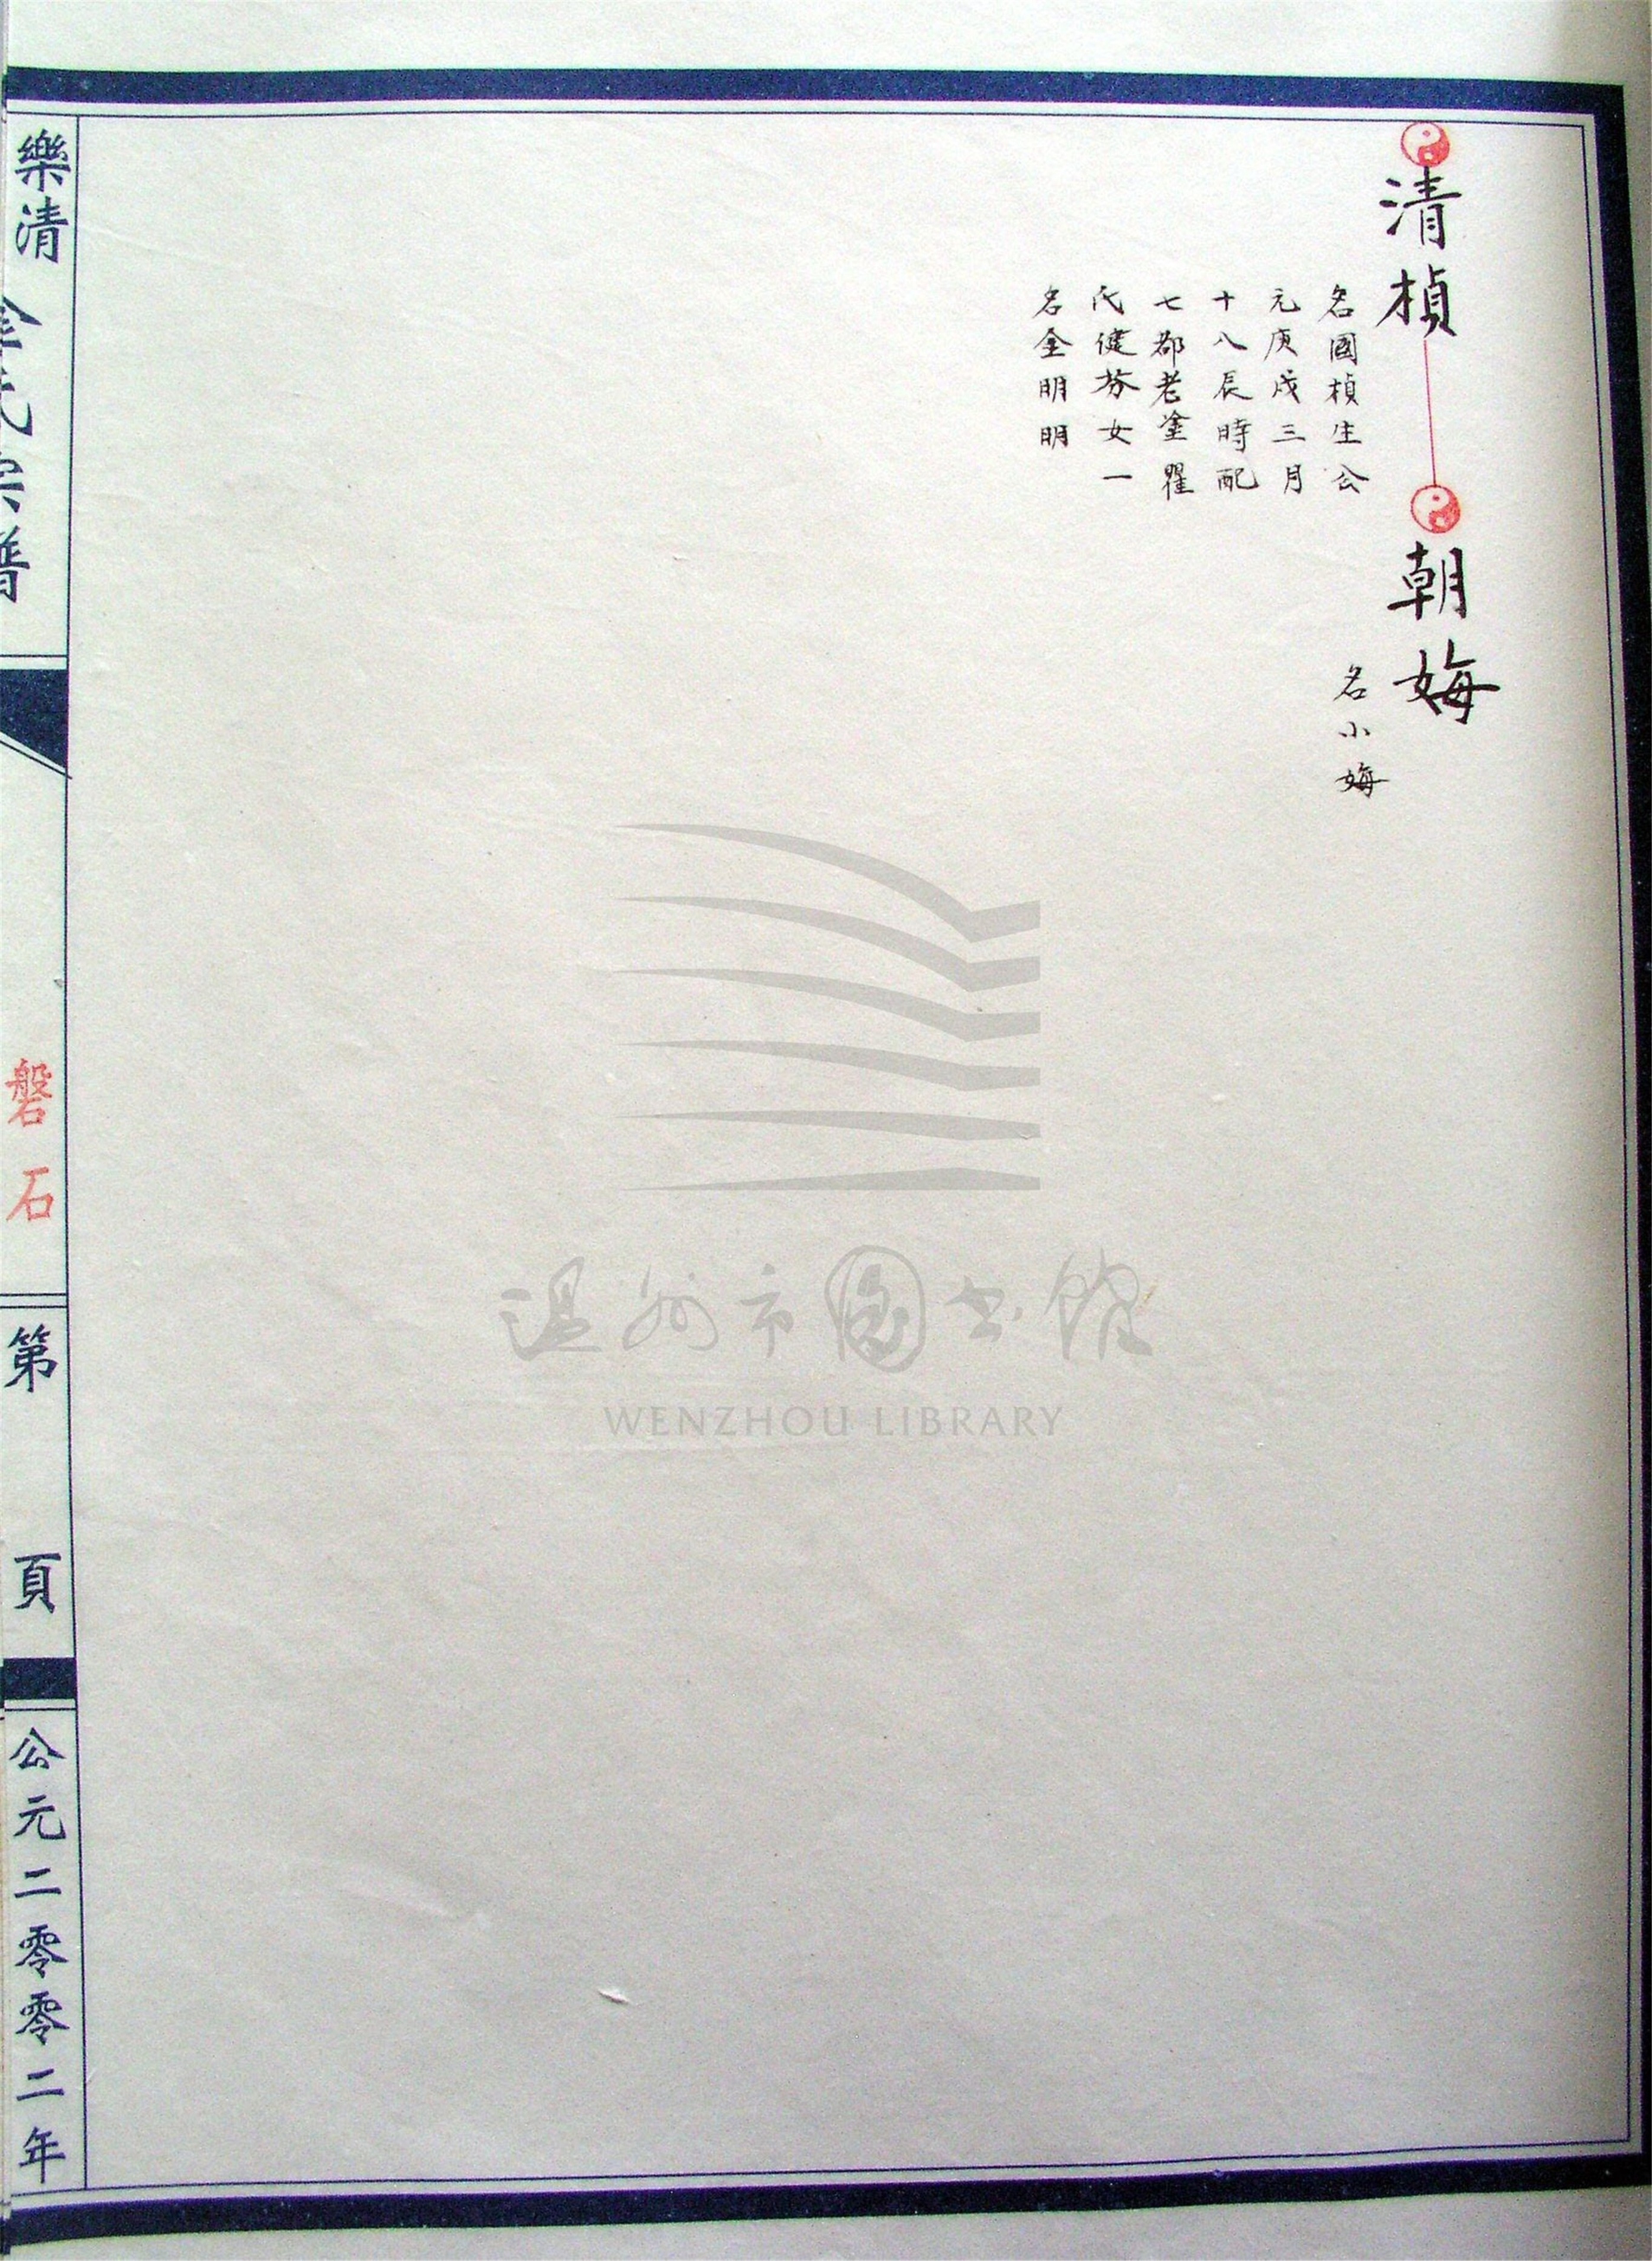 清楨
名國楨生公
元庚戌三月
十八辰時配
七都老塗瞿
氏健芬女一
名金明明
朝娒
名小娒
樂清 金氏宗譜
磐石
第 頁
公元二零零二年
温州市图书馆
WENZHOU LIBRARY